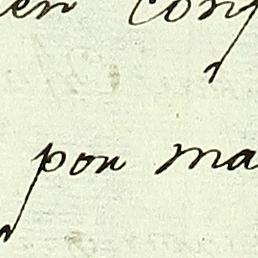 en conf
pon ma